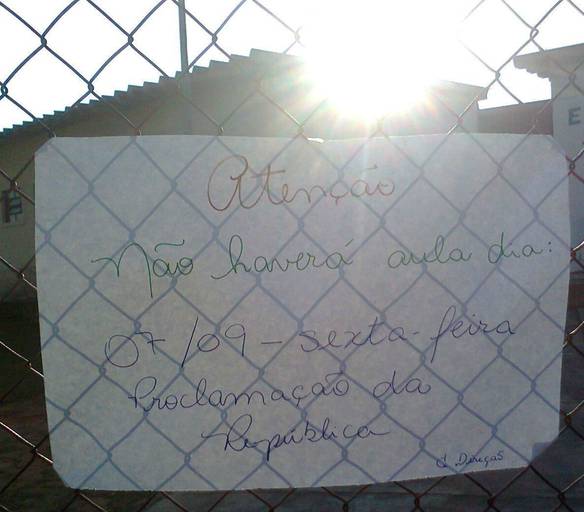 Atenção
Não haverá aula dia:
07/09 - sexta-feira
Proclamação da
República
E